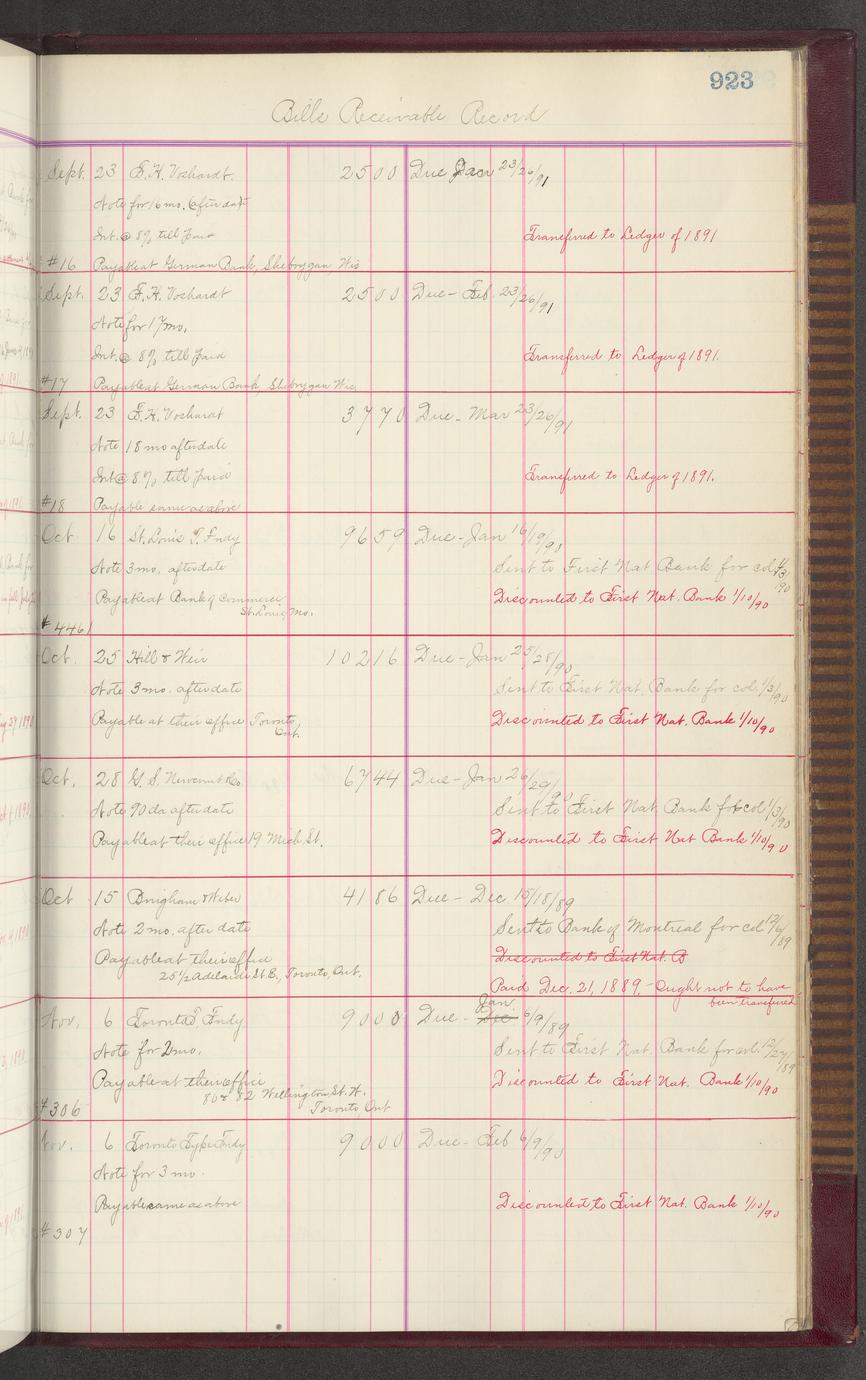 923
Bills Receivable Record
Sept. 23 F. H. Voshardt. 2500 Due Jan 23/26/91
Note for 16 mo. after date
Int. @ 8% till paid Transferred to Ledger of 1891
#16 Payable at German Bank, Sheboygan, Wis
Sept. 23 F. H. Voshardt 2500 Due - Feb. 23/26/91
Note for 17 mo.
Int. @ 8% till paid Transferred to Ledger of 1891.
#17 Payable at German Bank, Sheboygan Wis.
Sept. 23 F. H. Voshardt 3770 Due - Mar 23/26/91
Note 18 mo after date
Int @ 8% till paid Transferred to Ledger of 1891.
#18 Payable same as above
Oct. 16 St. Louis T. Fndy 9659 Due - Jan 16/19/90
Note 3 mo. after date Sent to First Nat Bank for col 1/3/90
Payable at Bank of Commerce Discounted to First Nat. Bank 1/10/90
St. Louis, Mo.
#4461
Oct. 25 Hill & Weir 10216 Due - Jan 25/28/90
Note 3 mo. after date Sent to First Nat. Bank for col. 1/3/90
Payable at their office Toronto, Discounted to First Nat. Bank 1/10/90
Ont.
Oct. 28 G. S. Newcomb & Co. 6744 Due - Jan 26/29/90
Note 90 da after date Sent to First Nat. Bank for col 1/3/90
Payable at their office 19 Mich St. Discounted to First Nat Bank 1/10/90
Oct 15 Brigham & Weber 4186 Due - Dec 15/18/89
Note 2 mo. after date Sent to Bank of Montreal for col 12/6/89
Payable at their office Discounted to First Nat. B
25 1/2 Adelaide St. E., Toronto, Ont.
Paid Dec. 21, 1889. - Ought not to have
been transferred
Jan
Nov. 6 Toronto T. Fndy 9000 Due - Dec 6/9/89
Note for 2 mo. Sent to First Nat. Bank for col. 12/27/89
Payable at their office Discounted to First Nat. Bank 1/10/90
80 & 82 Wellington St. W.
#306 Toronto Ont
Nov. 6 Toronto Type Fndy 9000 Due - Feb 6/9/90
Note for 3 mo.
Payable same as above Discounted to First Nat. Bank 1/10/90
#307